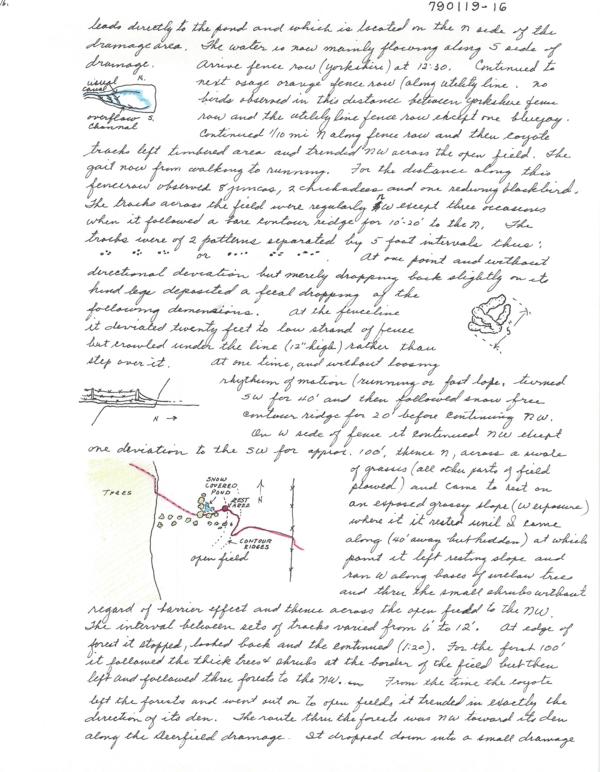 16.
790119-16
leads directly to the pond and which is located on the N side of the
drainage area. The water is now mainly flowing along S side of
drainage. Arrive fence row (Yorkshire) at 12:30. Continued to
usual canal N.
next osage orange fence row (along utility line. No
birds observed in this distance between Yorkshire fence
overflow S. channel
row and the utility line fence row except one bluejay.
Continued 1/10 mi N along fence row and then coyote
tracks left timbered area and trended NW across the open field. The
gait now from walking to running. For the distance along this
fencerow observed 8 juncos, 2 chickadees and one redwing blackbird.
The tracks across the field were regularly NW except three occasions
when it followed a bare contour ridge for 10'-20' to the N. The
tracks were of 2 patterns separated by 5 foot intervals thus:
or . At one point and without
directional deviation but merely dropping back slightly on its
hind legs deposited a fecal dropping of the
following demensions. At the fenceline
it deviated twenty feet to low strand of fence
but crawled under the line (12" high) rather than
step over it. At one time, and without loosing
rhythum of motion (running or fast lope, turned
SW for 40' and then followed snow free
N →
contour ridge for 20' before continuing NW.
On W side of fence it continued NW except
one deviation to the SW for approx. 100', thence N, across a swale
of grasses (all other parts of field
plowed) and came to rest on
TREES
SNOW COVERED POND
REST AREA
N
an exposed grassy slope (W exposure)
where it rested until I came
along (40' away but hidden) at which
CONTOUR RIDGES
open field
point it left resting slope and
ran W along bases of willow trees
and thru the small shrubs without
regard of barrier effect and thence across the open field to the NW.
The interval between sets of tracks varied from 6' to 12'. At edge of
forest it stopped, looked back and the continued (1:20). For the first 100'
it followed the thick trees & shrubs at the border of the field but then
left and followed thru forests to the NW. From the time the coyote
left the forests and went out on to open fields it trended in exactly the
direction of its den. The route thru the forests was NW toward its den
along the Deerfield drainage. It dropped down into a small drainage